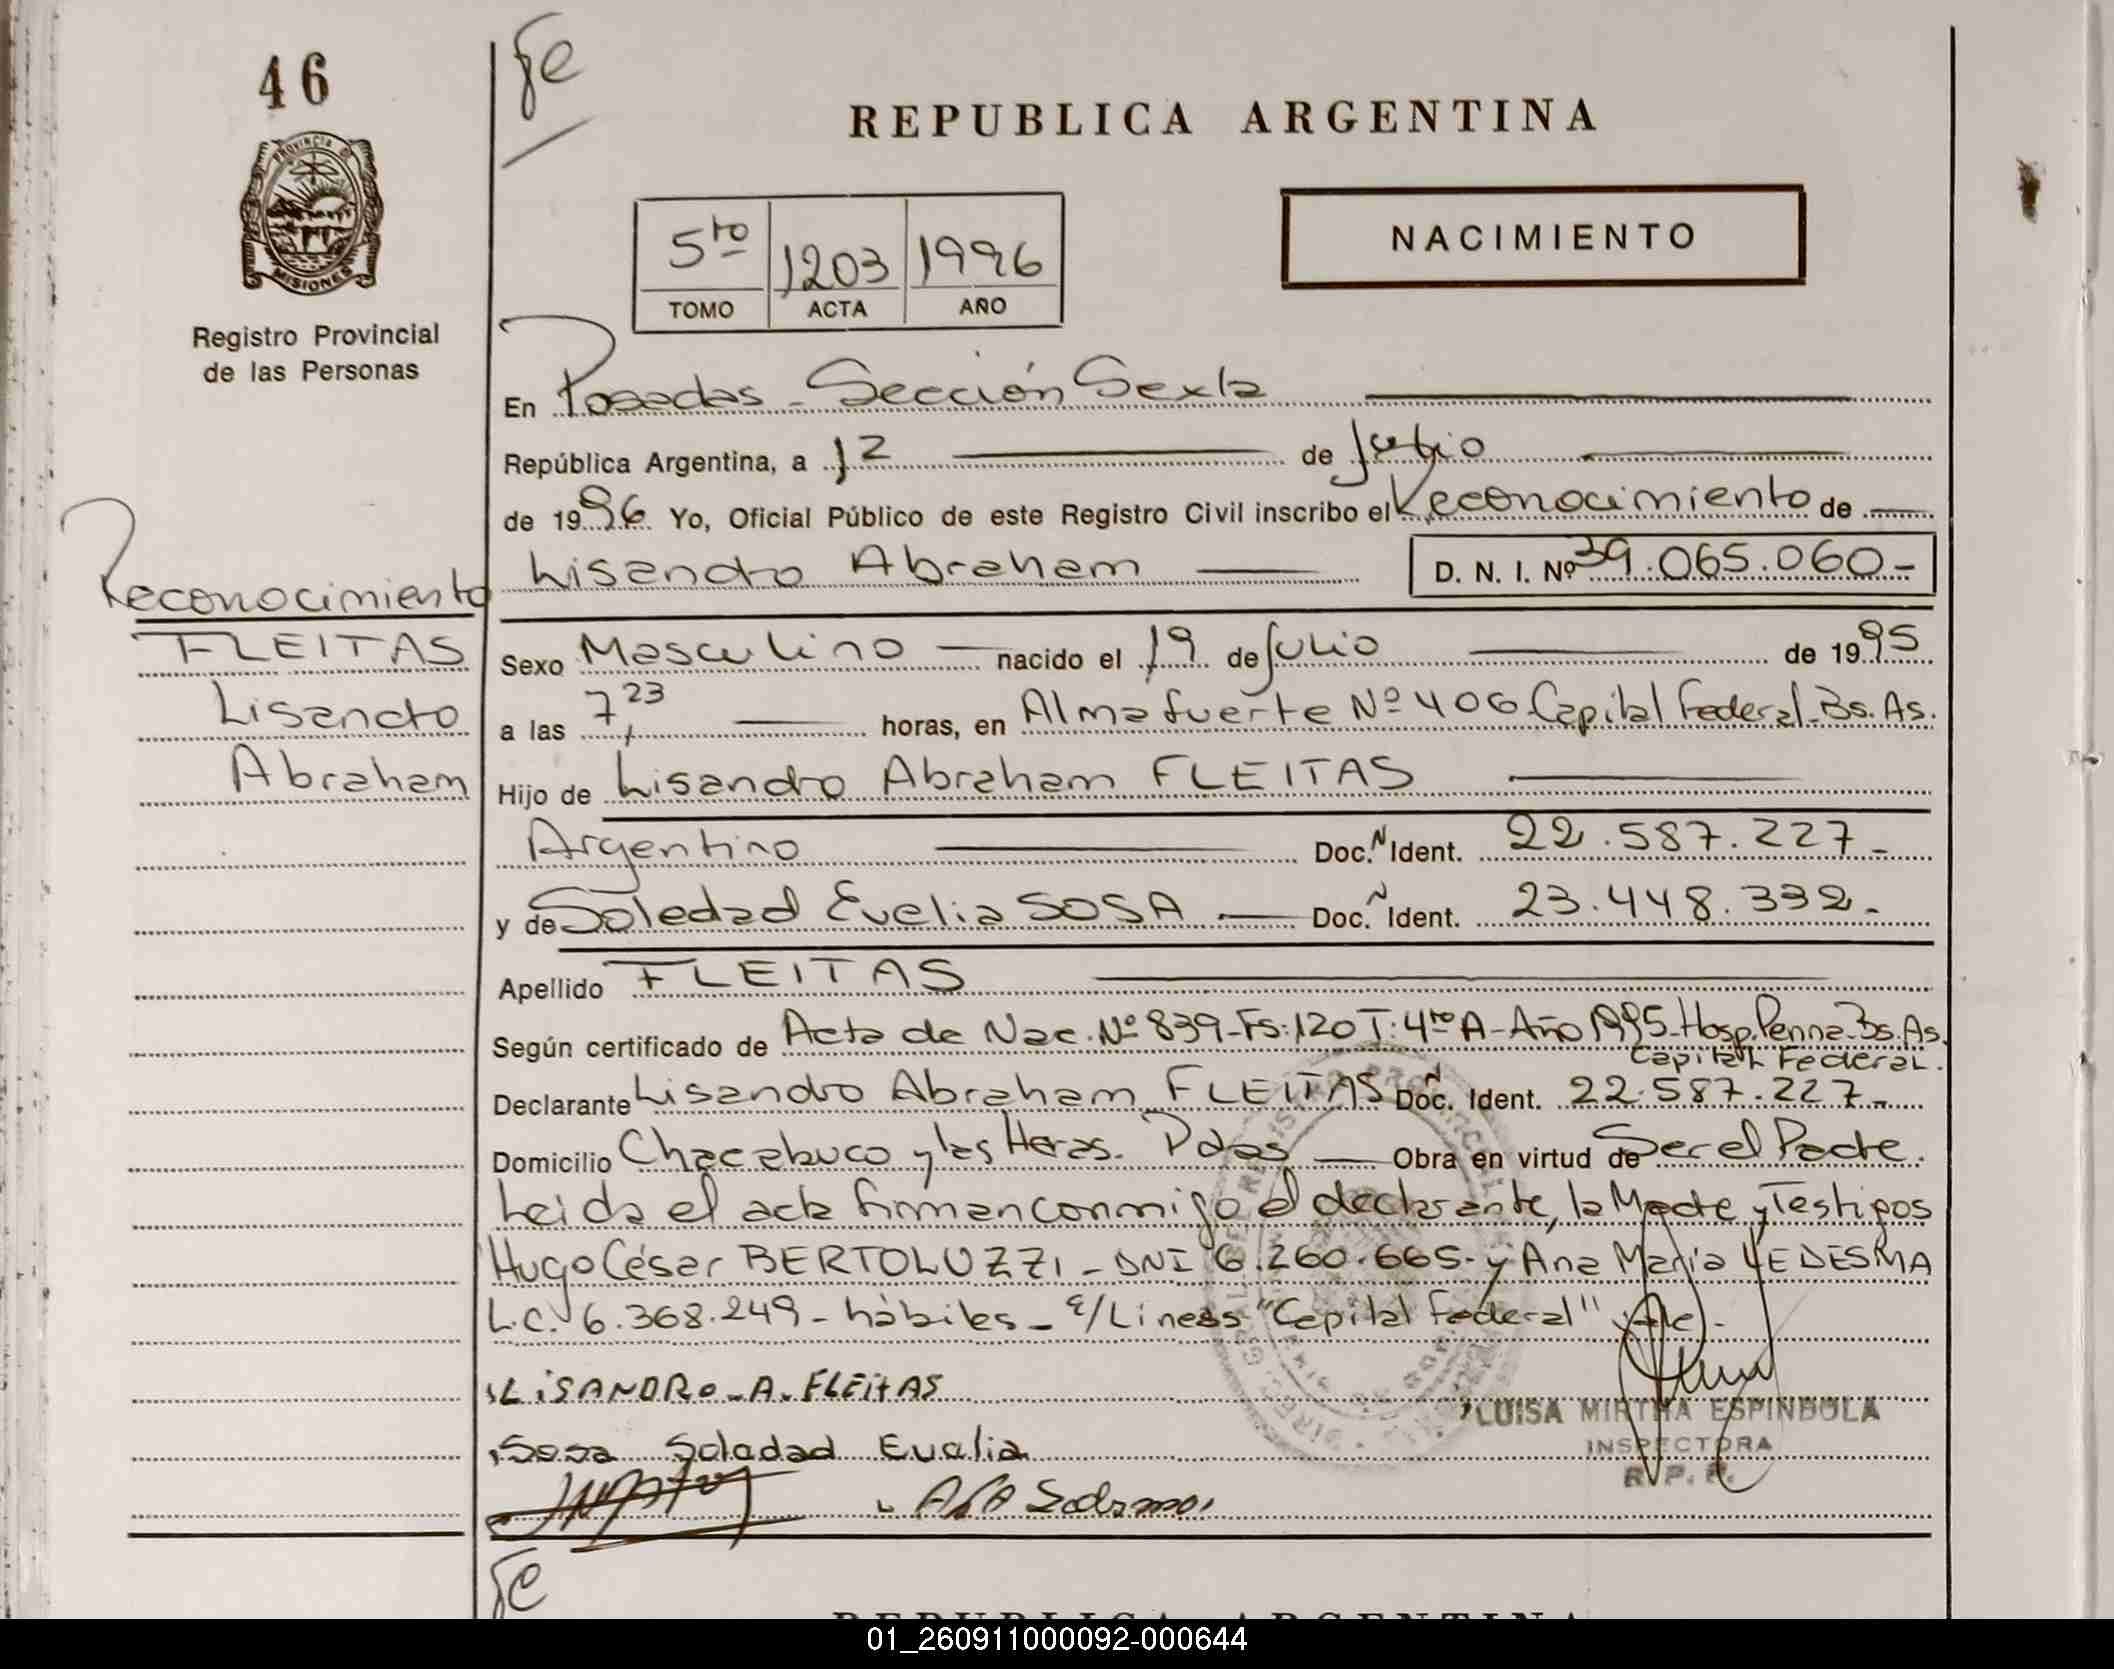 46
fe
REPUBLICA ARGENTINA
PROVINCIA D
MISIONES
Registro Provincial
de las Personas
5to 1203 1996
TOMO ACTA AÑO
NACIMIENTO
En Posadas - Sección Sexta
República Argentina, a 12 de Julio
de 1996 Yo, Oficial Público de este Registro Civil inscribo el Reconocimiento de
Lisandro Abraham D. N. I. Nº 39.065.060-
Reconocimiento
FLEITAS
Lisandro
Abraham
Sexo Masculino nacido el 19 de Julio de 1995
a las 7,23 horas, en Almafuerte Nº 406 Capital Federal - Bs. As.
Hijo de Lisandro Abraham FLEITAS
Argentino Doc. N Ident. 22.587.227-
y de Soledad Evelia SOSA Doc. N Ident. 23.448.332-
Apellido FLEITAS
Según certificado de Acta de Nac. Nº 839 - Fs: 120 T: 4to A - Año 1995 - Hosp. Penna - Bs. As.
Capital Federal.
Declarante Lisandro Abraham FLEITAS Doc. N Ident. 22.587.227-
Domicilio Chacabuco y las Heras. Pdas Obra en virtud de Ser el Padre.
Leida el acta firman conmigo el declarante, la Madre y Testigos
Hugo César BERTOLUZZI - DNI 6.260.665- y Ana María LEDESMA
L.C. 6.368.249 - hábiles - e/Lineas "Capital Federal"
LISANDRO - A. FLEITAS
LUISA MIRTHA ESPINDOLA
INSPECTORA
R. P. P.
Sosa Soledad Evelia
fe
REPUBLICA ARGENTINA
01_260911000092-000644